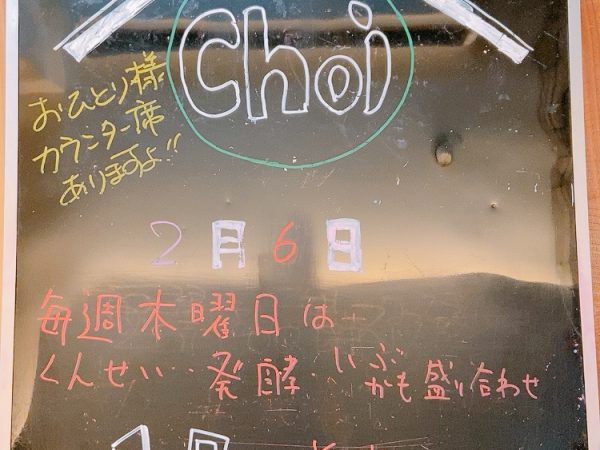 Choi
おひとり様
カウンター席
ありますよ!!
2月6日
毎週木曜日は
くんせい・・発酵・いぶ
かも盛り合わせ